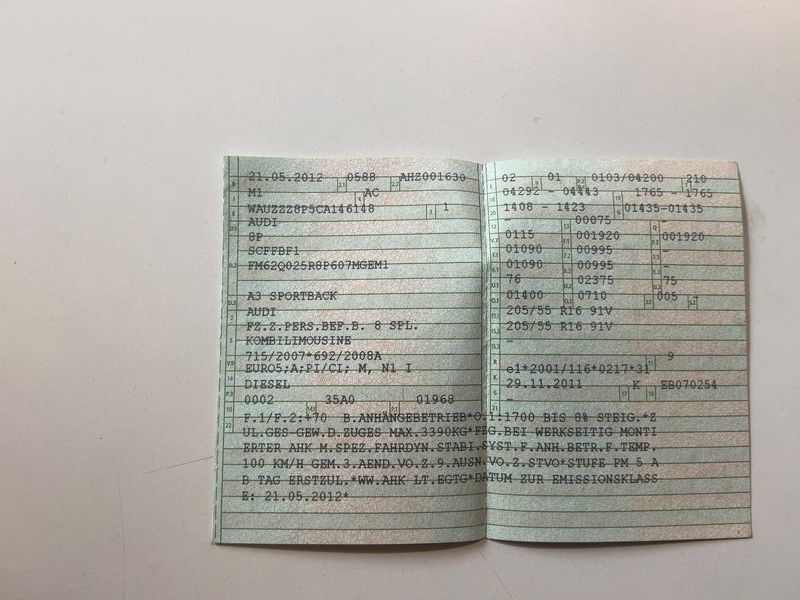 21.05.2012 0588 AHZ001630
M1 AC
WAUZZZ8P5CA146148 1
AUDI
8P
SCFFBF1
FM62Q025R8P607MGEM1
A3 SPORTBACK
AUDI
FZ.Z.PERS.BEF.B. 8 SPL.
KOMBILIMOUSINE
715/2007*692/2008A
EURO5;A;PI/CI; M, N1 I
DIESEL
0002 35A0 01968
02 01 0103/04200 210
04292 - 04443 1765 - 1765
1408 - 1423 01435-01435
- 00075
0115 001920 001920
01090 00995 -
01090 00995 -
76 02375 75
01400 0710 005 -
205/55 R16 91V
205/55 R16 91V
-
9
e1*2001/116*0217*31
29.11.2011 K EB070254
-
F.1/F.2:+70 B.ANHÄNGEBETRIEB*O.1:1700 BIS 8% STEIG.*Z
UL.GES-GEW.D.ZUGES MAX.3390KG*FZG.BEI WERKSEITIG MONTI
ERTER AHK M.SPEZ.FAHRDYN.STABI.SYST.F.ANH.BETR.F.TEMP.
100 KM/H GEM.3.AEND.VO.Z.9.AUSN.VO.Z.STVO*STUFE PM 5 A
B TAG ERSTZUL.*WW.AHK LT.EGTG*DATUM ZUR EMISSIONSKLASS
E: 21.05.2012*